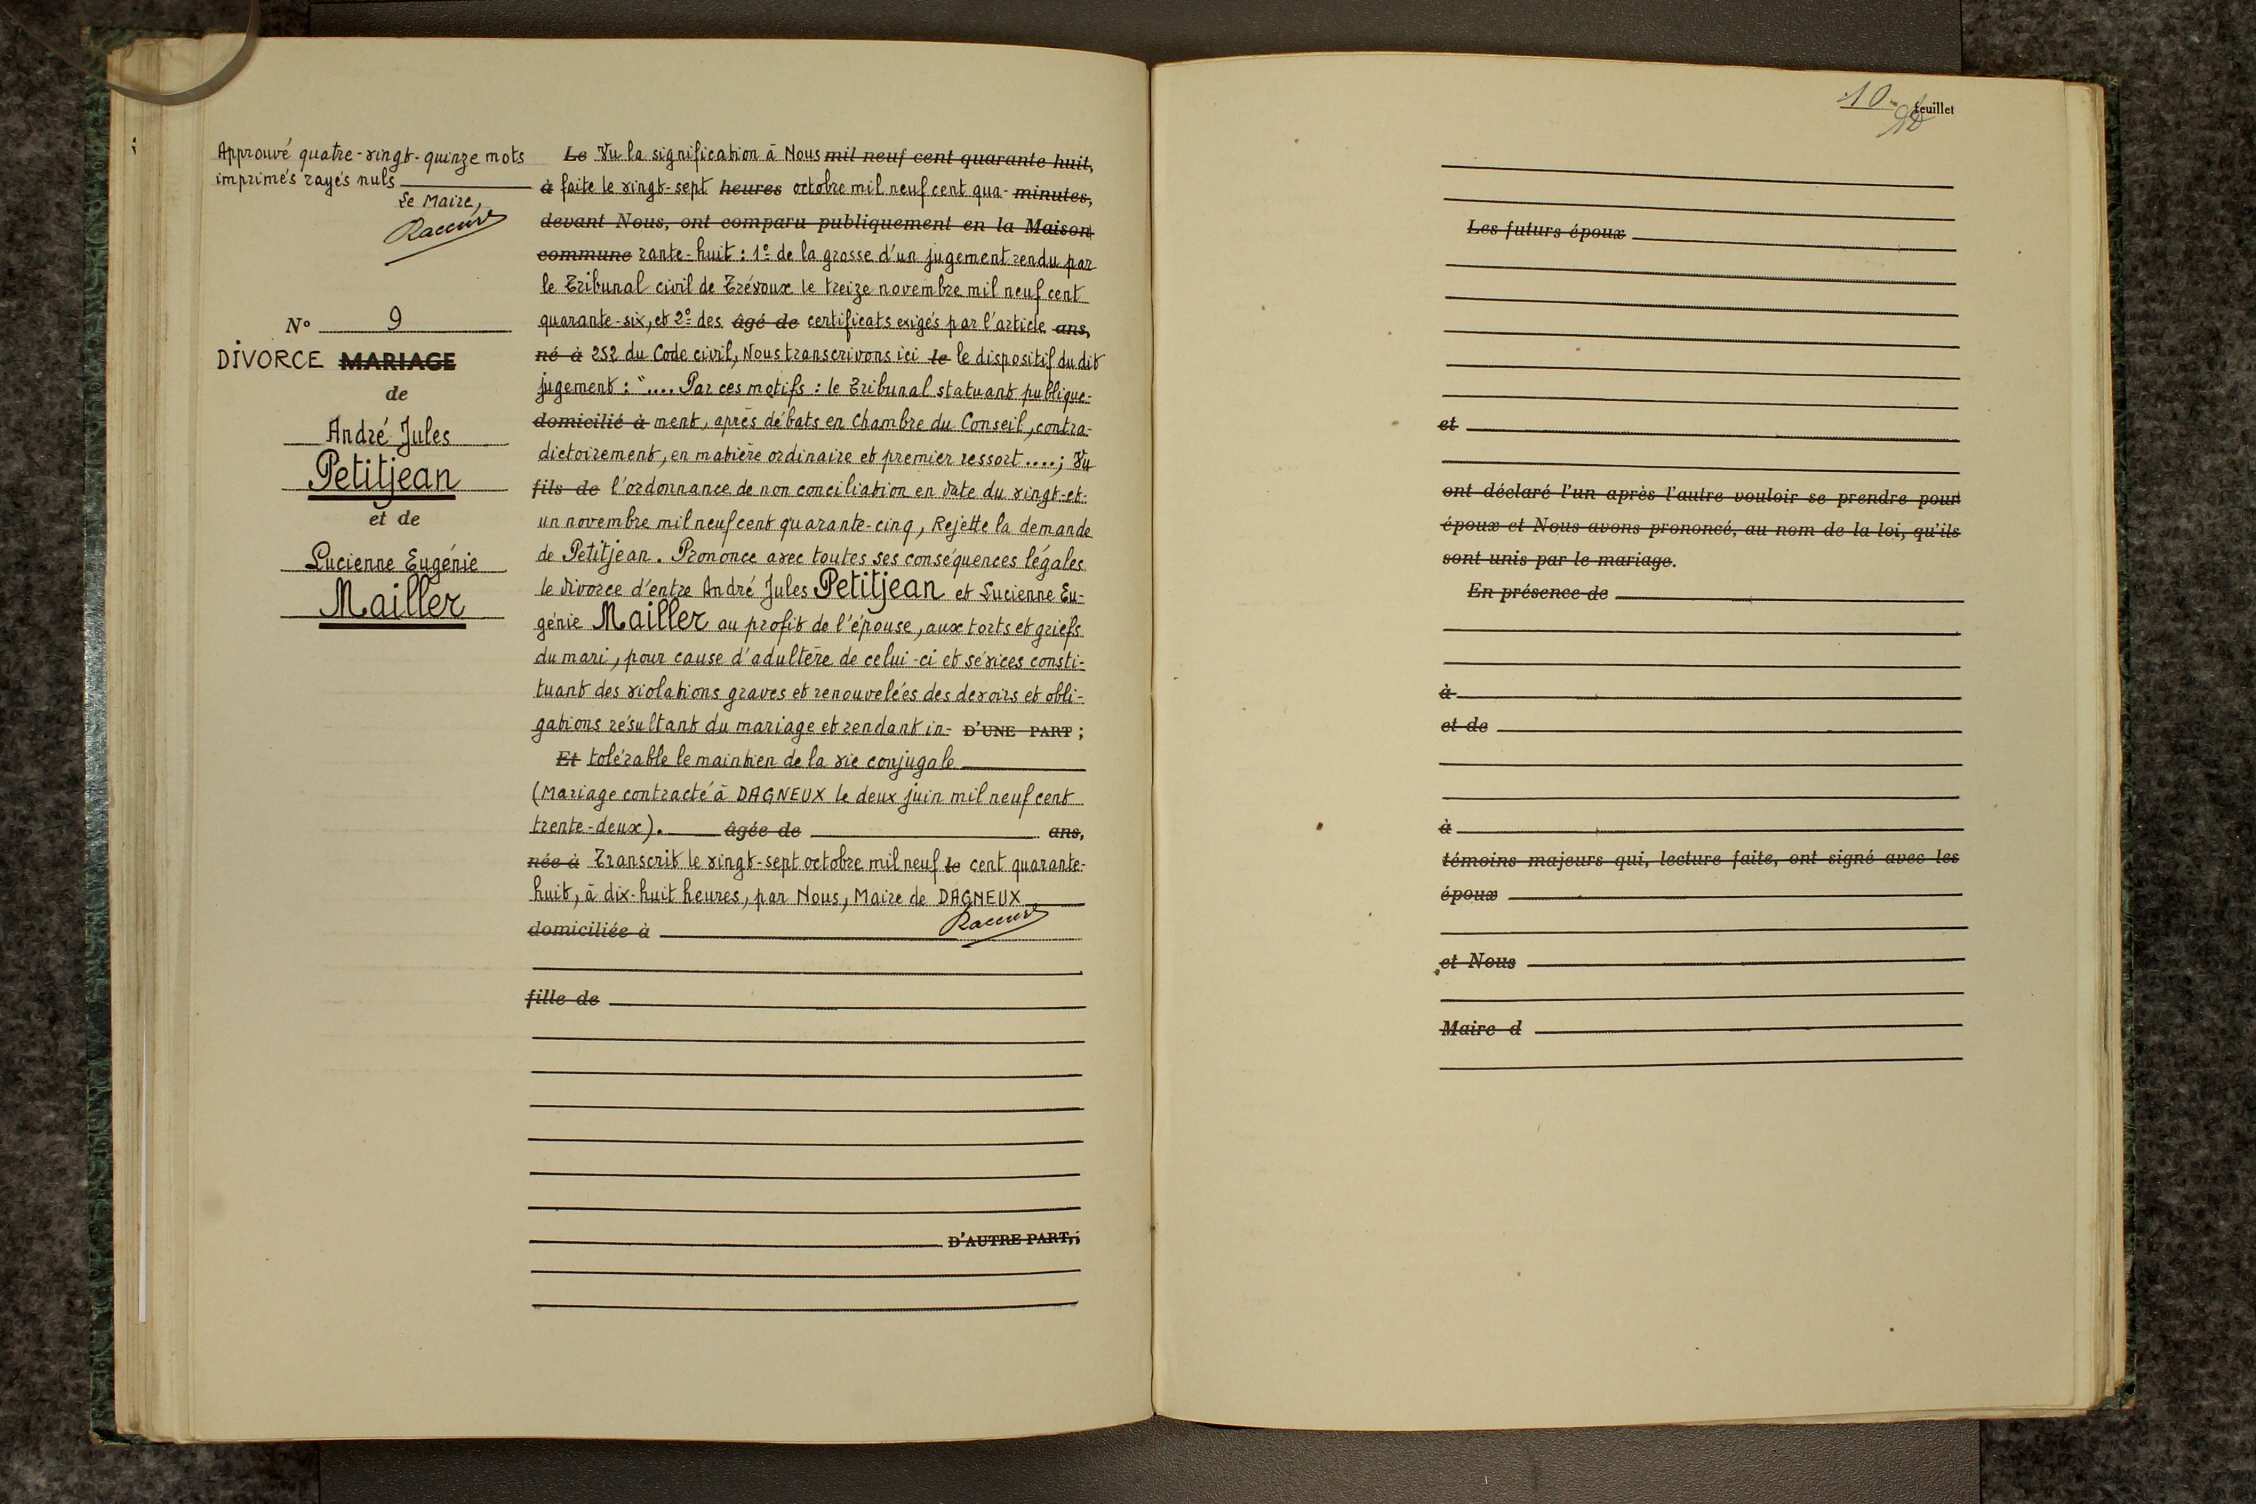 Approuvé quatre-vingt-quinze mots
imprimés rayés nuls
Le Maire,
N° 9
DIVORCE MARIAGE
de
André Jules
Petitjean
et de
Lucienne Eugénie
Mailler
Le Vu la signification à Nous mil neuf cent quarante huit,
à faite le vingt-sept heures octobre mil neuf cent qua- minutes,
devant Nous, ont comparu publiquement en la Maison
commune rante-huit : 1° de la grosse d'un jugement rendu par
le Tribunal civil de Trévoux le treize novembre mil neuf cent
quarante-six, et 2° des âgé de certificats exigés par l'article ans,
né à 252 du Code civil, Nous transcrivons ici le le dispositif du dit
jugement : ".... Par ces motifs : le Tribunal statuant publique-
domicilié à ment, après débats en Chambre du Conseil, contra-
dictoirement, en matière ordinaire et premier ressort ....; Vu
fils de l'ordonnance de non conciliation en date du vingt-et-
un novembre mil neuf cent quarante-cinq, Rejette la demande
de Petitjean. Prononce avec toutes ses conséquences légales
le divorce d'entre André Jules Petitjean et Lucienne Eu-
génie Mailler au profit de l'épouse, aux torts et griefs
du mari, pour cause d'adultère de celui-ci et sévices consti-
tuant des violations graves et renouvelées des devoirs et obli-
gations résultant du mariage et rendant in- D'UNE PART ;
Et tolérable le maintien de la vie conjugale
(Mariage contracté à DAGNEUX le deux juin mil neuf cent
trente-deux). âgée de ans,
née à Transcrit le vingt-sept octobre mil neuf le cent quarante-
huit, à dix-huit heures, par Nous, Maire de DAGNEUX
domiciliée à
fille de
D'AUTRE PART,;
10 feuillet
Les futurs époux
et
ont déclaré l'un après l'autre vouloir se prendre pour
époux et Nous avons prononcé, au nom de la loi, qu'ils
sont unis par le mariage.
En présence de
à
et de
à
témoins majeurs qui, lecture faite, ont signé avec les
époux
et Nous
Maire d